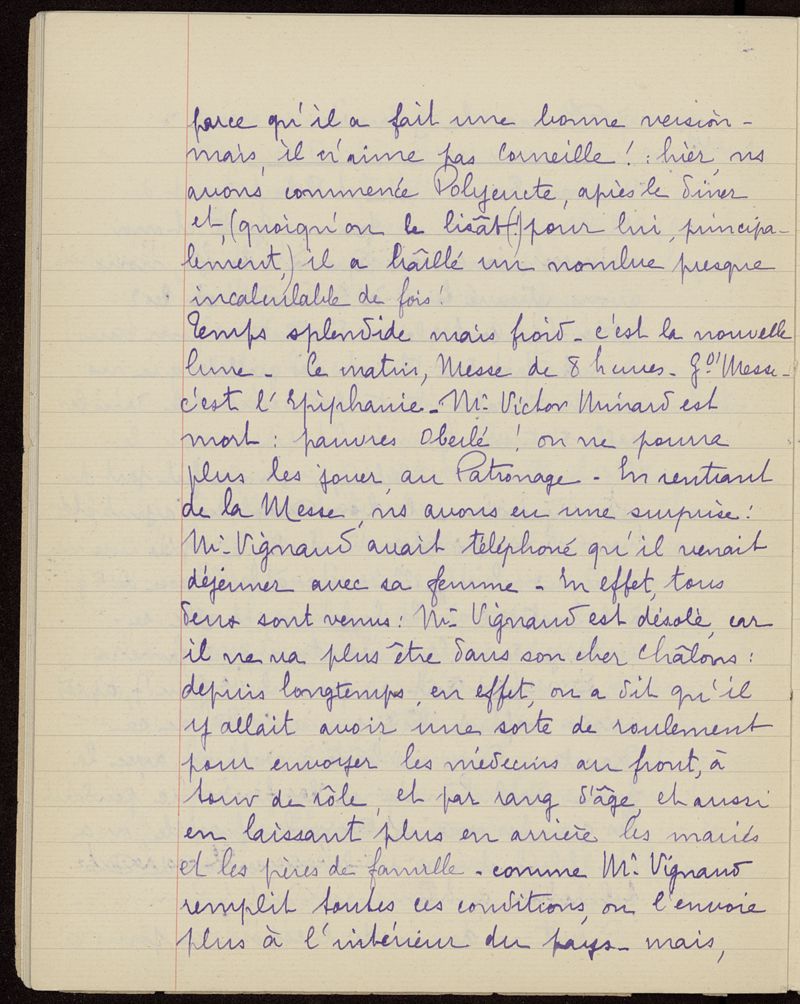 parce qu'il a fait une bonne version -
mais, il n'aime pas Corneille ! : hier, ns
avons commencé Polyeucte, après le dîner
et, (quoiqu'on le lisât (!) pour lui, principa-
lement,) il a bâillé un nombre presque
incalculable de fois !
Temps splendide mais froid - c'est la nouvelle
lune - Ce matin, Messe de 8 heures - Gd' Messe -
c'est l'Epiphanie - Mr Victor Minard est
mort : pauvres Oberlé ! on ne pourra
plus les jouer, au Patronage - En rentrant
de la Messe, ns avons eu une surprise :
Mr Vignaud avait téléphoné qu'il venait
déjeuner avec sa femme - En effet, tous
deux sont venus : Mr Vignaud est désolé, car
il ne va plus être dans son cher Châlons :
depuis longtemps, en effet, on a dit qu'il
y allait avoir une sorte de roulement
pour envoyer les médecins au front, à
tour de rôle, et par rang d'âge, et aussi
en laissant plus en arrière les mariés
et les pères de famille - comme Mr Vignaud
remplit toutes ces conditions, on l'envoie
plus à l'intérieur du pays - mais,